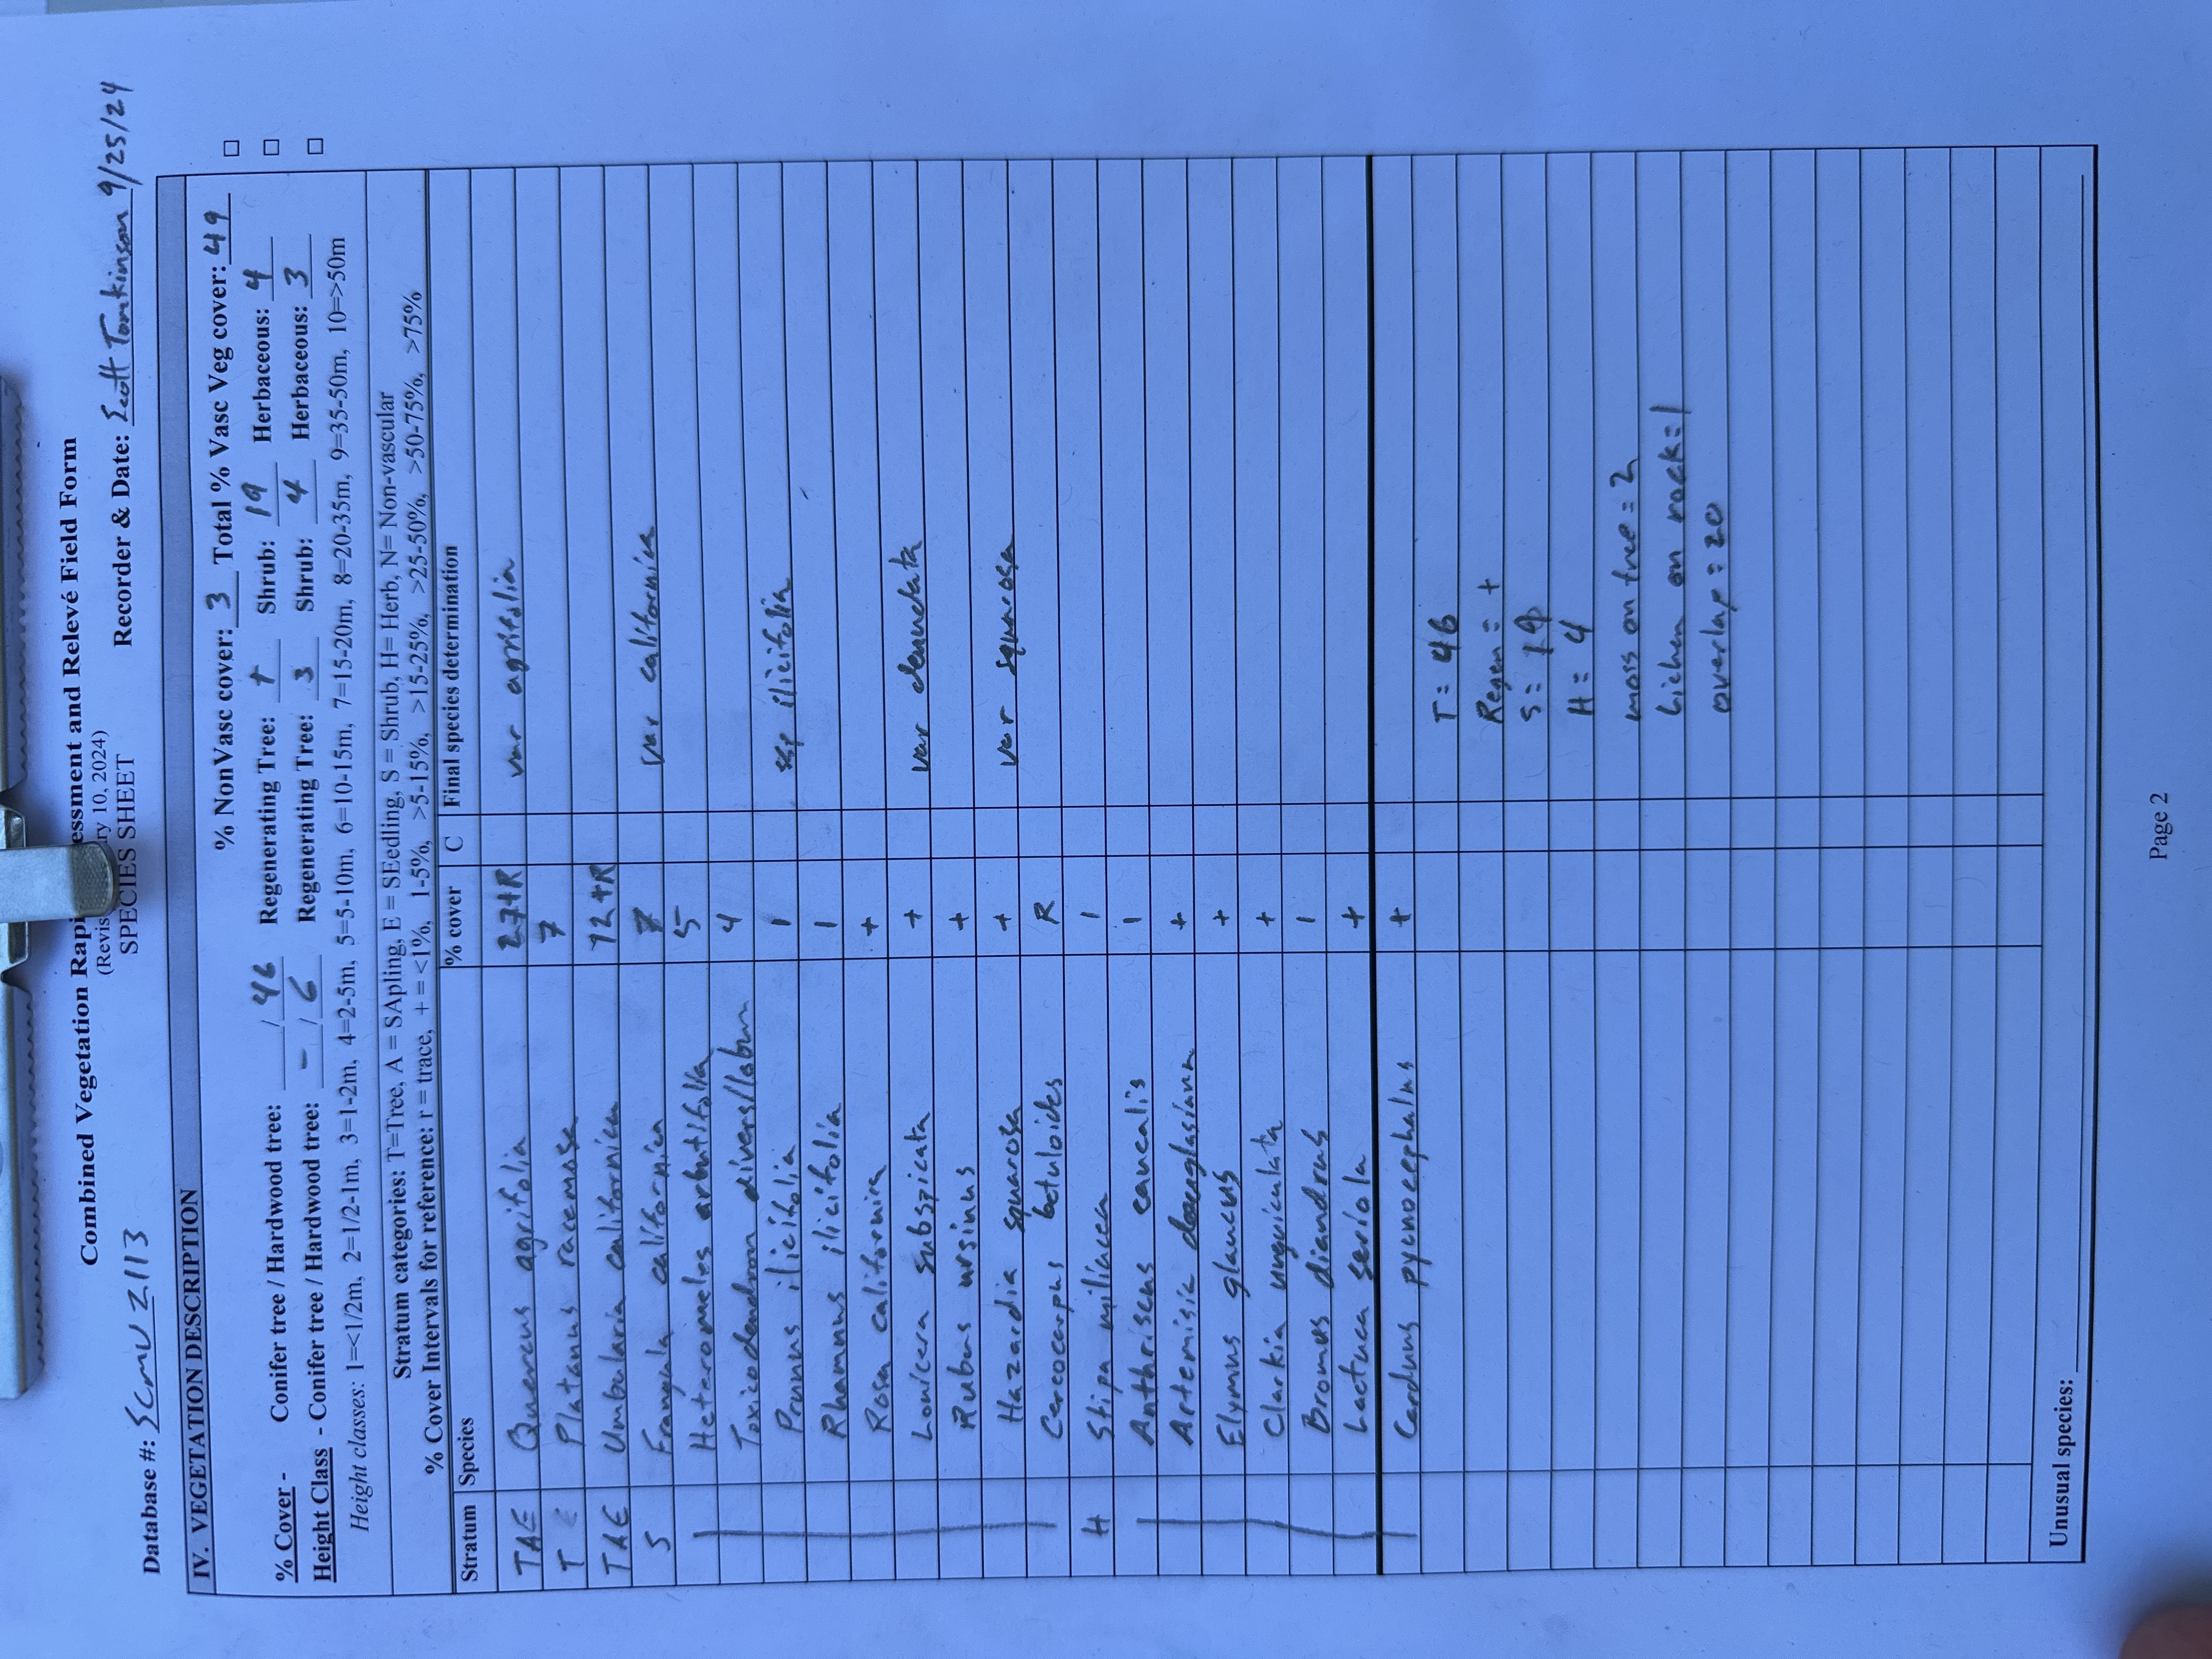 Combined Vegetation Rapi essment and Relevé Field Form
(Revis ry 10, 2024)
SPECIES SHEET
Database #: SCMV2113 Recorder & Date: Scott Tomkinson 9/25/24
IV. VEGETATION DESCRIPTION
% NonVasc cover: 3 Total % Vasc Veg cover: 49 □
% Cover - Conifer tree / Hardwood tree: / 46 Regenerating Tree: + Shrub: 19 Herbaceous: 4 □
Height Class - Conifer tree / Hardwood tree: - / 6 Regenerating Tree: 3 Shrub: 4 Herbaceous: 3 □
Height classes: 1=<1/2m, 2=1/2-1m, 3=1-2m, 4=2-5m, 5=5-10m, 6=10-15m, 7=15-20m, 8=20-35m, 9=35-50m, 10=>50m
Stratum categories: T=Tree, A = SApling, E = SEedling, S = Shrub, H= Herb, N= Non-vascular
% Cover Intervals for reference: r = trace, + = <1%, 1-5%, >5-15%, >15-25%, >25-50%, >50-75%, >75%
Stratum Species % cover C Final species determination
TAE Quercus agrifolia 27+R var agrifolia
T Platanus racemosa 7
TAE Umbularia californica 12+R
S Frangula californica 7 var californica
Heteromeles arbutifolia 5
Toxicodendron diversilobum 4
Prunus ilicifolia 1 ssp ilicifolia
Rhamnus ilicifolia 1
Rosa californica +
Lonicera subspicata + var denudata
Rubus ursinus +
Hazardia squarrosa + var squarosa
Cercocarpus betuloides R
H Stipa miliacea 1
Anthriscus caucalis 1
Artemisia douglasiana +
Elymus glaucus +
Clarkia unguiculata +
Bromus diandrus 1
Lactuca seriola +
Carduus pycnocephalus +
T = 46
Regen = +
S = 19
H = 4
moss on tree = 2
lichen on rock = 1
overlap = 20
Unusual species:
Page 2